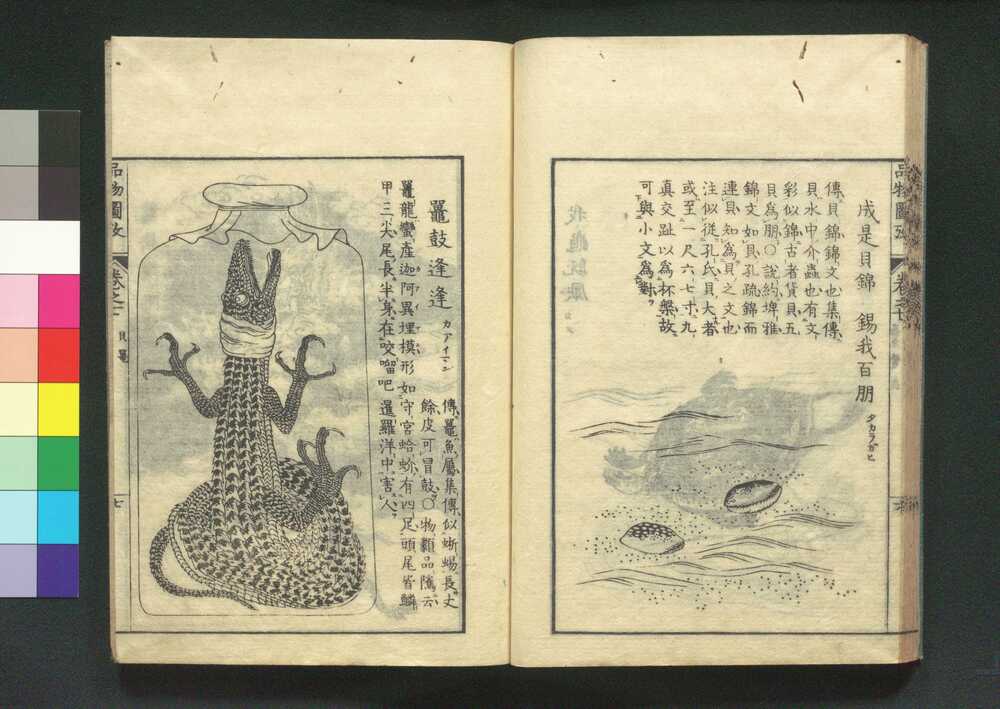 品物圖攷 卷之七
成是貝錦 錫我百朋 タカラガヒ
傳貝錦錦文也集傳
貝水中介蟲也有文
彩似錦古者貨貝五
貝爲朋〇說約埤雅
錦文如貝孔疏錦而
連貝知爲貝之文也
注似從孔氏貝大者
或至一尺六七寸九
真交趾以爲杯槃故
可與小文爲對
鼉鼓逢逢 カアイマン
傳鼉魚屬集傳似蜥蜴長丈
餘皮可冒鼓〇物類品隲云
鼉龍蠻產迦阿異埋模形如守宮蛤蚧有四足頭尾皆鱗
甲三尖尾長半身在咬𠺕吧暹羅洋中害人
品物圖攷 卷之七 貝鼉 七